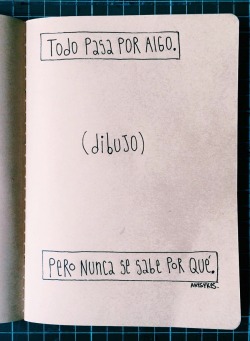 Todo pasa POR AlGO.
(dibujo)
PeRO NuNca se sabe POR QUÉ.